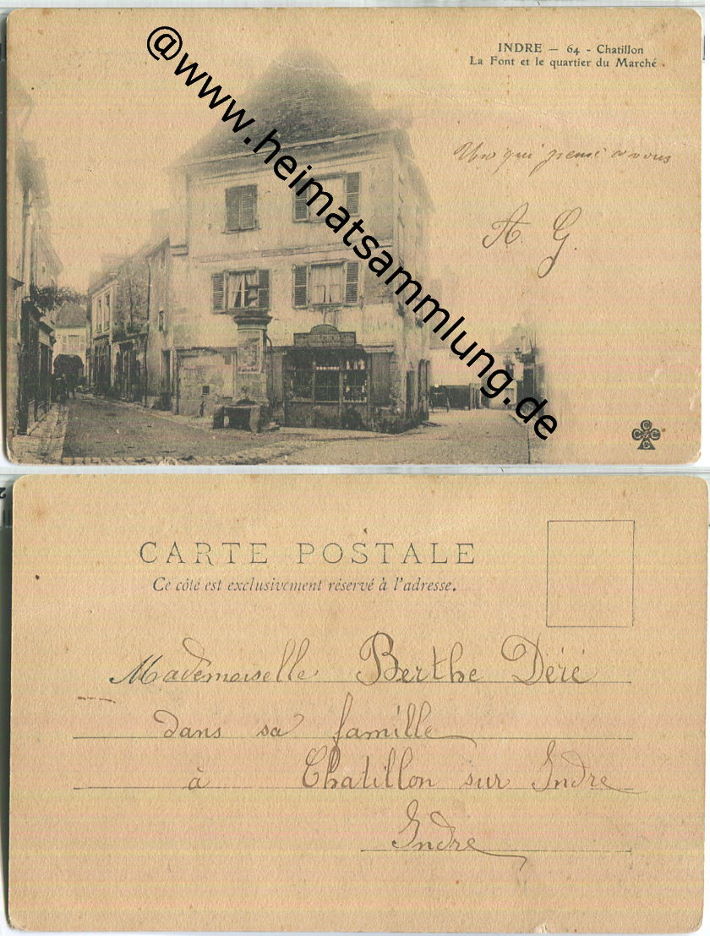 INDRE — 64 - Chatillon
La Font et le quartier du Marché.
@www.heimatsammlung.de
Une qui pense à vous
A. G.
CARTE POSTALE
Ce côté est exclusivement réservé à l'adresse.
Mademoiselle Berthe Déré
dans sa famille
à Chatillon sur Indre
Indre